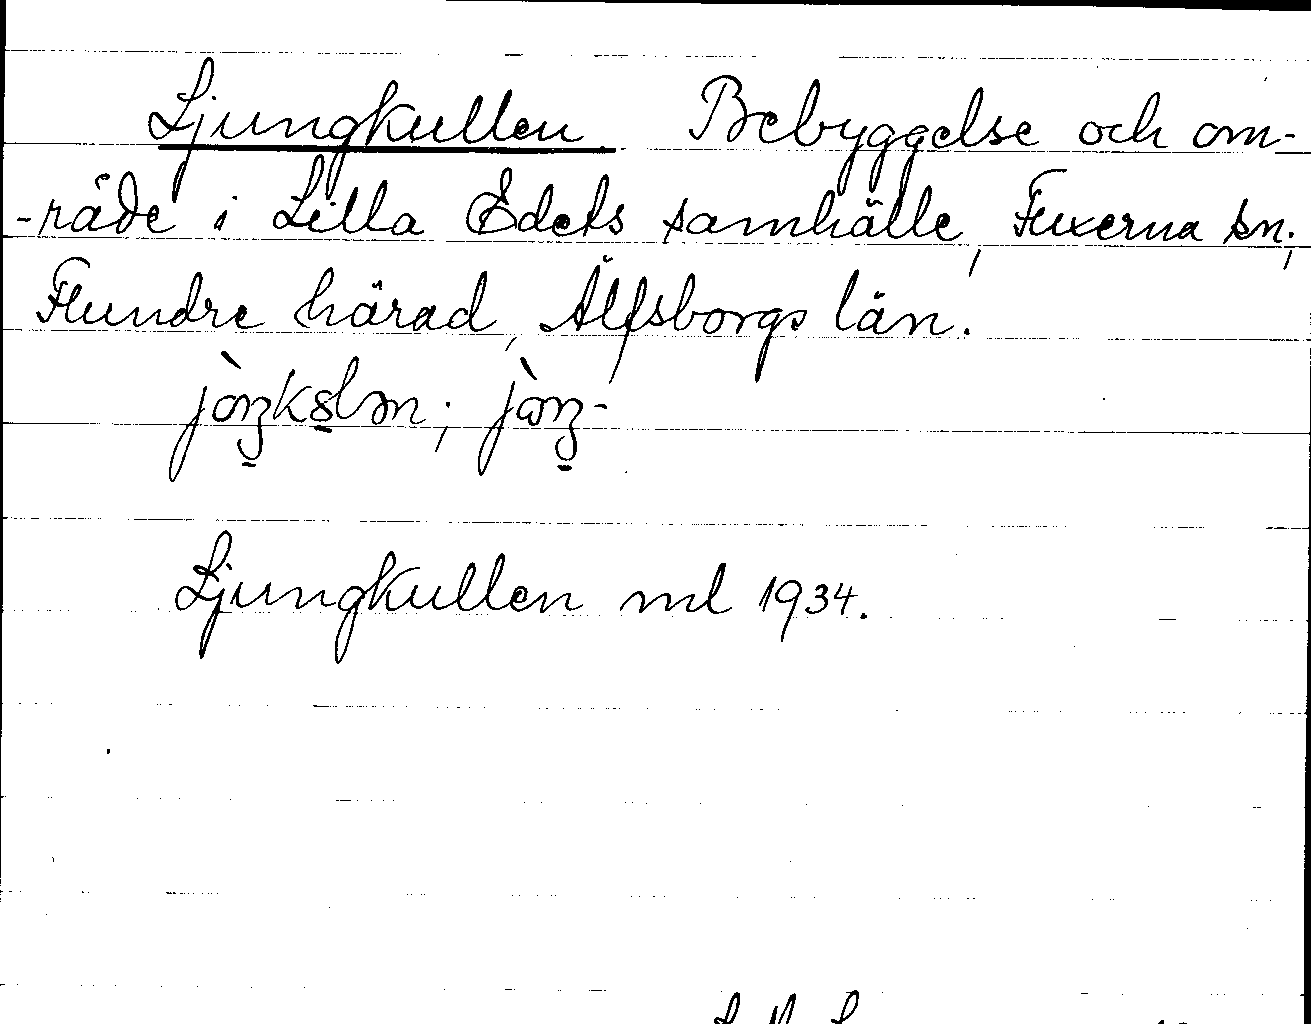 Ljungkullen Bebyggelse och om-
-råde i Lilla Edets samhälle, Fuxerna sn;
Flundre härad, Älfsborgs län.
Ljungkullen ml 1934.